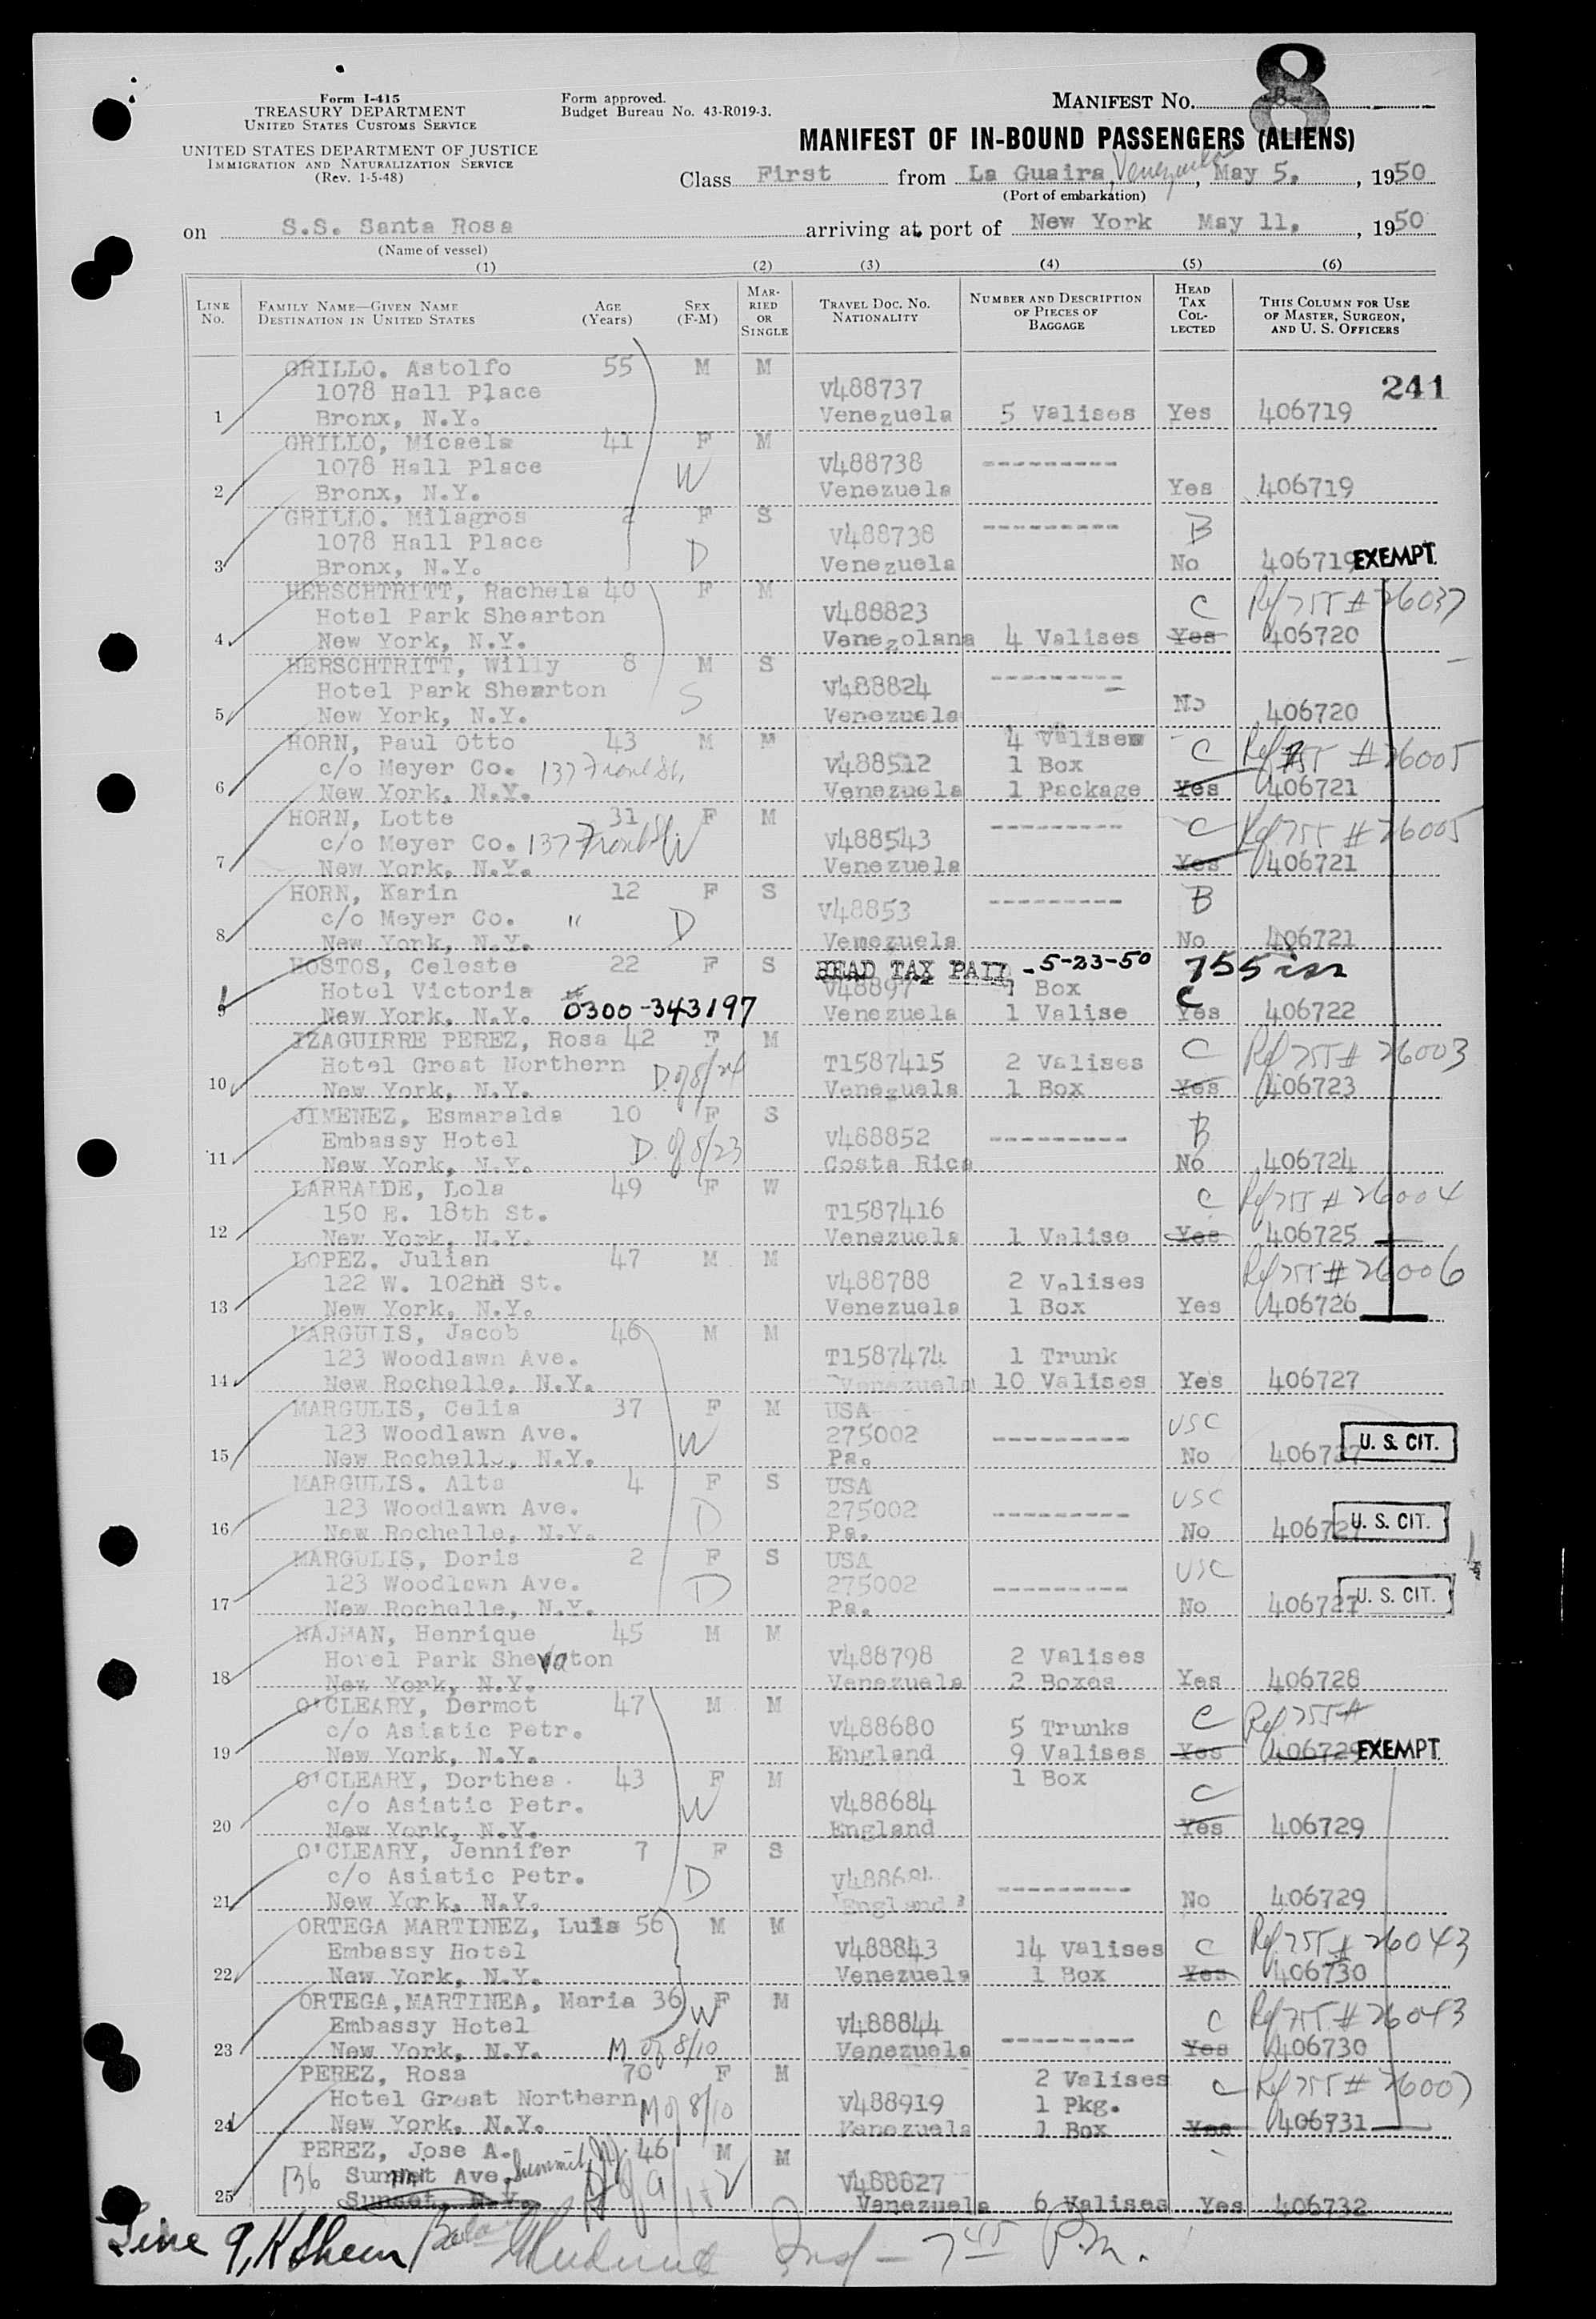 8
Form I-415
TREASURY DEPARTMENT
UNITED STATES CUSTOMS SERVICE
UNITED STATES DEPARTMENT OF JUSTICE
IMMIGRATION AND NATURALIZATION SERVICE
(Rev. 1-5-48)
Form approved.
Budget Bureau No. 43-R019-3.
MANIFEST NO.
MANIFEST OF IN-BOUND PASSENGERS (ALIENS)
Class First from La Guaira, Venezuela, May 5, , 1950
(Port of embarkation)
on S.S. Santa Rosa arriving at port of New York May 11, , 1950
(Name of vessel)
(1) (2) (3) (4) (5) (6)
LINE NO. FAMILY NAME—GIVEN NAME DESTINATION IN UNITED STATES AGE (Years) SEX (F-M) MARRIED OR SINGLE TRAVEL DOC. NO. NATIONALITY NUMBER AND DESCRIPTION OF PIECES OF BAGGAGE HEAD TAX COLLECTED THIS COLUMN FOR USE OF MASTER, SURGEON, AND U. S. OFFICERS
GRILLO. Astolfo 55 M M
1078 Hall Place V488737 241
1 Bronx, N.Y. Venezuela 5 Valises Yes 406719
GRILLO, Micaela 41 F M
1078 Hall Place W V488738 ---------
2 Bronx, N.Y. Venezuela Yes 406719
GRILLO. Milagros 2 F S
1078 Hall Place D V488738 --------- B
3 Bronx, N.Y. Venezuela No 406719 EXEMPT
HERSCHTRITT, Rachela 40 F M
Hotel Park Shearton V488823 C Ref 755 # 26037
4 New York, N.Y. Venezolana 4 Valises Yes 406720
HERSCHTRITT, Willy 8 M S
Hotel Park Shearton S V488824 ---------
5 New York, N.Y. Venezuela No 406720
HORN, Paul Otto 43 M M 4 Valises
c/o Meyer Co. 137 Front St. V488512 1 Box C Ref 755 # 26005
6 New York, N.Y. Venezuela 1 Package Yes 406721
HORN, Lotte 31 F M
c/o Meyer Co. 137 Front St W V488543 --------- C Ref 755 # 26005
7 New York, N.Y. Venezuela Yes 406721
HORN, Karin 12 F S
c/o Meyer Co. " D V48853 --------- B
8 New York, N.Y. Venezuela No 406721
HOSTOS, Celeste 22 F S HEAD TAX PAID - 5-23-50 755 isn
Hotel Victoria V48897 1 Box C
9 New York, N.Y. #0300-343197 Venezuela 1 Valise Yes 406722
IZAGUIRRE PEREZ, Rosa 42 F M
Hotel Great Northern D. of 8/24 T1587415 2 Valises C Ref 755 # 26003
10 New York, N.Y. Venezuela 1 Box Yes 406723
JIMENEZ, Esmaralda 10 F S
Embassy Hotel D. of 8/23 V488852 --------- B
11 New York, N.Y. Costa Rica No 406724
LARRALDE, Lola 49 F W
150 E. 18th St. T1587416 C Ref 755 # 26004
12 New York, N.Y. Venezuela 1 Valise Yes 406725
LOPEZ. Julian 47 M M
122 W. 102nd St. V488788 2 Valises Ref 755 # 26006
13 New York, N.Y. Venezuela 1 Box Yes 406726
MARGULIS, Jacob 46 M M
123 Woodlawn Ave. T1587474 1 Trunk
14 New Rochelle, N.Y. Venezuela 10 Valises Yes 406727
MARGULIS, Celia 37 F M USA
123 Woodlawn Ave. W 275002 --------- USC
15 New Rochelle, N.Y. Pa. No 406727 U. S. CIT.
MARGULIS. Alta 4 F S USA
123 Woodlawn Ave. D 275002 --------- USC
16 New Rochelle, N.Y. Pa. No 406727 U. S. CIT.
MARGULIS, Doris 2 F S USA
123 Woodlawn Ave. D 275002 --------- USC
17 New Rochelle, N.Y. Pa. No 406727 U. S. CIT.
NAJMAN, Henrique 45 M M
Hotel Park Sheraton V488798 2 Valises
18 New York, N.Y. Venezuela 2 Boxes Yes 406728
O'CLEARY, Dermot 47 M M
c/o Asiatic Petr. V488680 5 Trunks C Ref 755#
19 New York, N.Y. England 9 Valises Yes 406729 EXEMPT
O'CLEARY, Dorthea 43 F M 1 Box
c/o Asiatic Petr. W V488684 C
20 New York, N.Y. England Yes 406729
O'CLEARY, Jennifer 7 F S
c/o Asiatic Petr. D V488684 ---------
21 New York, N.Y. England No 406729
ORTEGA MARTINEZ, Luis 56 M M
Embassy Hotel V488843 14 Valises C Ref 755 # 26043
22 New York, N.Y. Venezuela 1 Box Yes 406730
ORTEGA,MARTINEA, Maria 36 W F M
Embassy Hotel V488844 --------- C Ref 755 # 26043
23 New York, N.Y. M of 8/10 Venezuela Yes 406730
PEREZ, Rosa 70 F M 2 Valises
Hotel Great Northern M of 8/10 V488919 1 Pkg. C Ref 755 # 26007
24 New York, N.Y. Venezuela 1 Box Yes 406731
PEREZ, Jose A. 46 M M
136 Summit Ave. Summit NJ V488827
25 Sunset, N.Y. Venezuela 6 Valises Yes 406732
Line 9, 7 45 P.m.